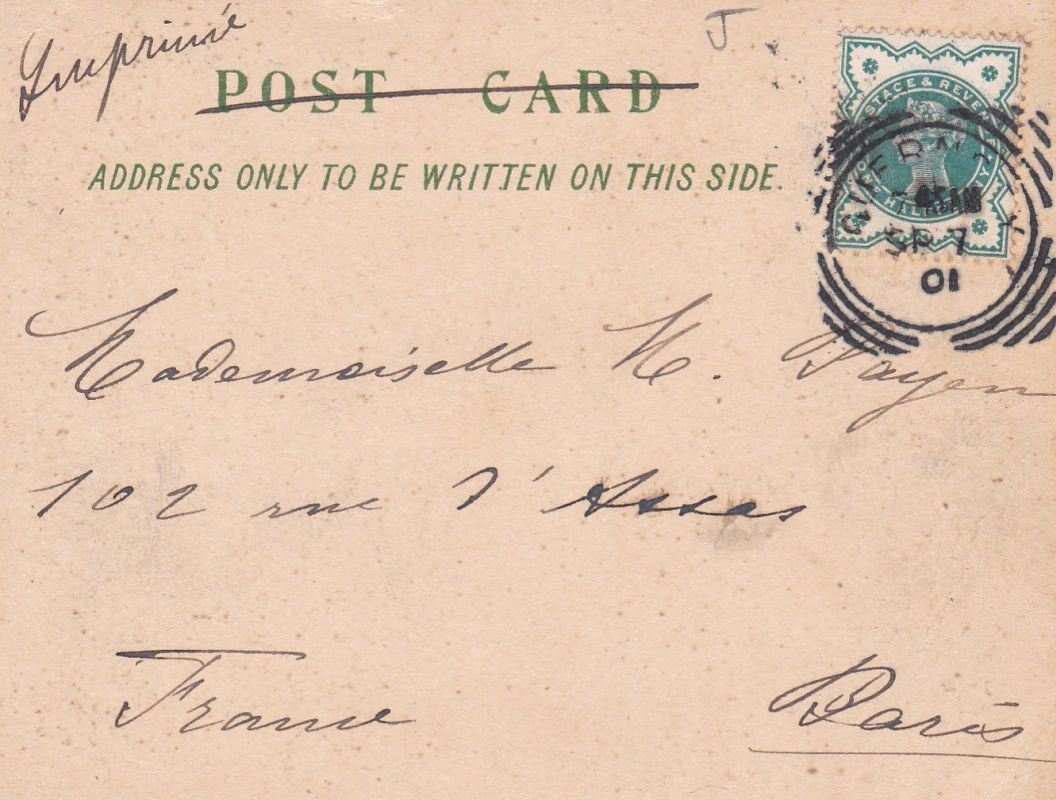 Imprimé
POST CARD
J.
POSTAGE & REVENUE
HALFPENNY
GUERNSEY
SP 7
01
ADDRESS ONLY TO BE WRITTEN ON THIS SIDE.
Mademoiselle M.
102 rue d'Assas
France
Paris